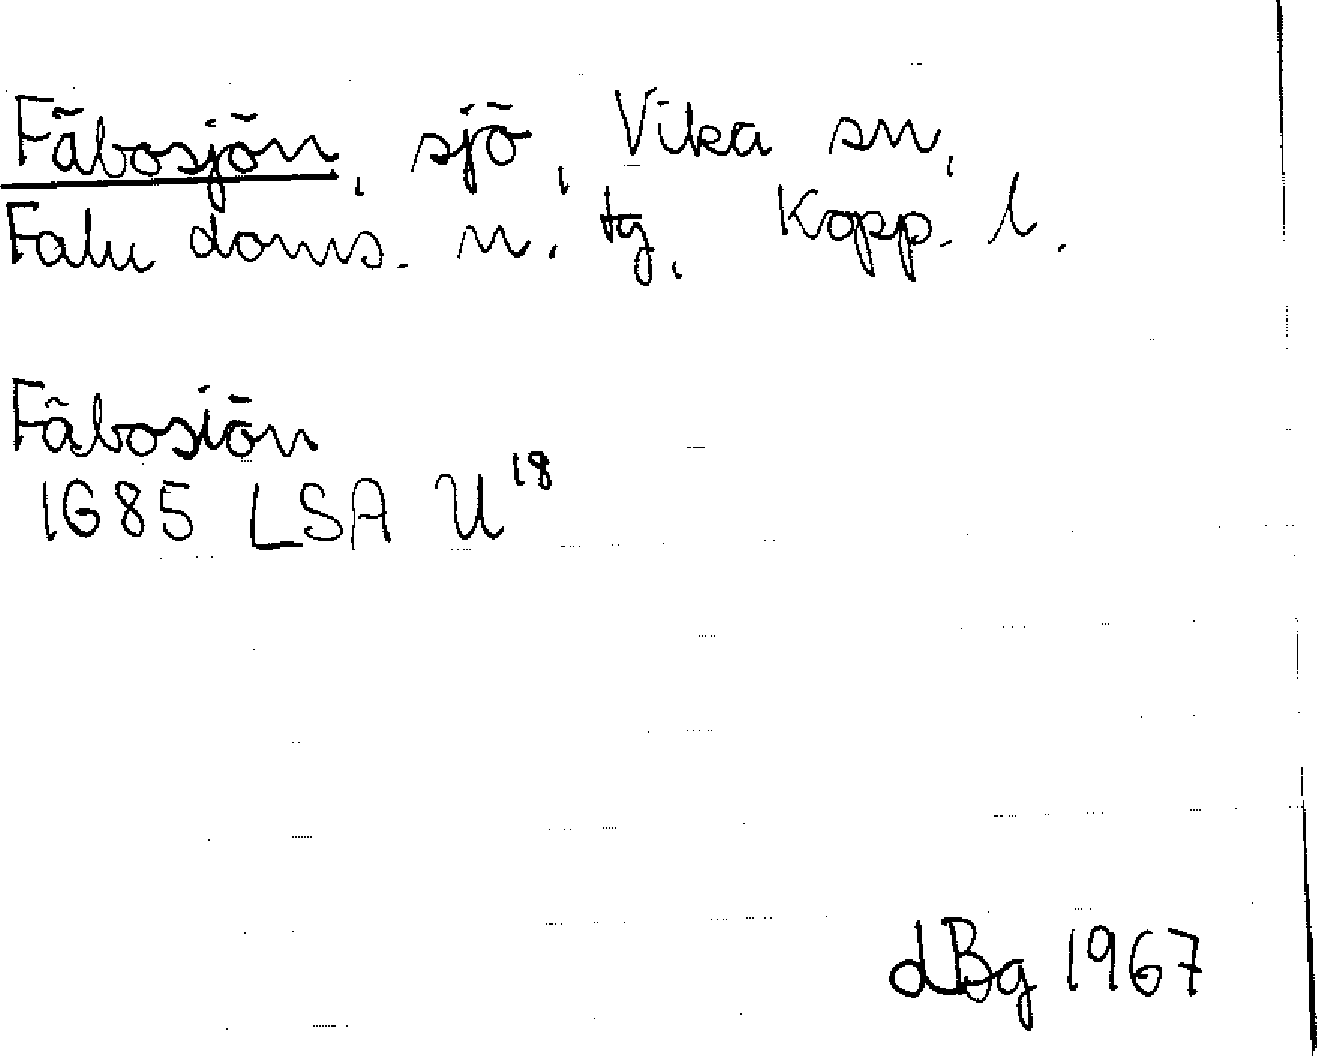 Fäbosjön, sjö, Vika sn,
Falu doms. n. tg, Kopp. l.
Fäbosiön
1685 LSA U¹⁸
dBg 1967